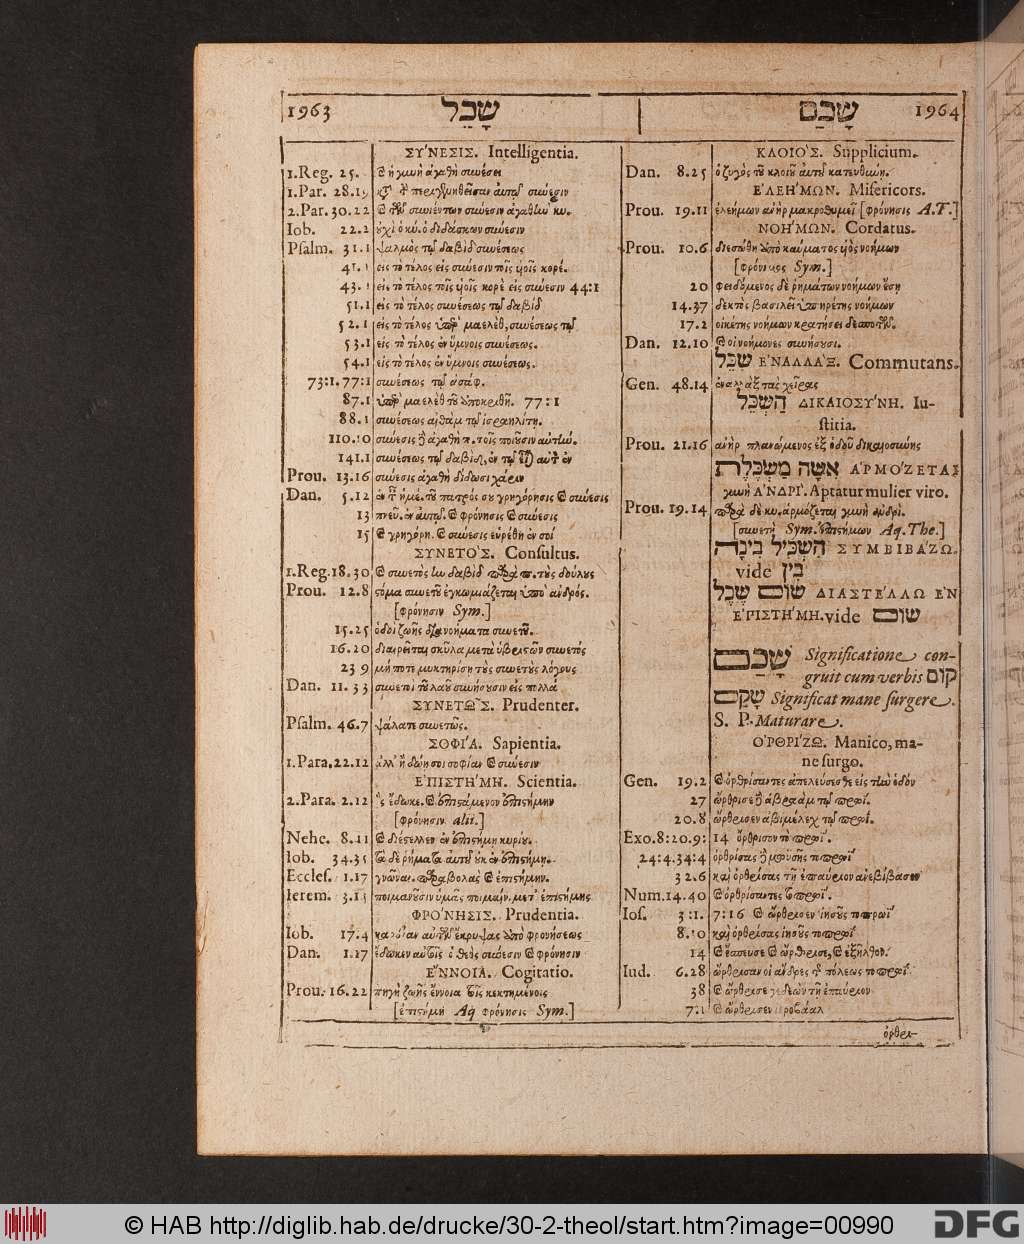 1963 שָׂכֵל
ΣΎΝΕΣΙΣ. Intelligentia.
1.Reg. 25. ἡ γυνὴ ἀγαθὴ συνέσει
1.Par. 28.19
2.Par. 30.22
Iob. 22.2 οὐχὶ ὁ κύ. ὁ διδάσκων σύνεσιν
Psalm. 31.1 ψαλμὸς τῷ δαβὶδ συνέσεως
41.1 εἰς τὸ τέλος εἰς σύνεσιν τοῖς υἱοῖς κορέ.
43.1 εἰς τὸ τέλος τοῖς υἱοῖς κορὲ εἰς σύνεσιν 44:1
51.1 εἰς τὸ τέλος συνέσεως τῷ δαβὶδ
52.1 εἰς τὸ τέλος ὑπὲρ μαελὲθ, συνέσεως τῷ
53.1 εἰς τὸ τέλος ἐν ὕμνοις συνέσεως.
54.1 εἰς τὸ τέλος ἐν ὕμνοις συνέσεως.
73:1. 77:1 συνέσεως τῷ ἀσάφ.
87.1 ὑπὲρ μαελὲθ τοῦ ἀποκριθῆ. 77:1
88.1 συνέσεως αἰθὰμ τῷ ἰσραηλίτῃ.
110.10 σύνεσις ἀγαθὴ π. τοῖς ποιοῦσιν αὐτήν.
141.1 συνέσεως τῷ δαβὶδ, ἐν τῷ
Prou. 13.16 σύνεσις ἀγαθὴ δίδωσι χάριν
Dan. 5.12 τοῦ πατρός σου γρηγόρησις καὶ σύνεσις
13 πνεῦ. ἐν αὐτῷ. καὶ φρόνησις καὶ σύνεσις
15 καὶ γρηγόρη. καὶ σύνεσις εὑρέθη ἐν σοί
ΣΥΝΕΤῸΣ. Consultus.
1.Reg. 18.30 καὶ συνετὸς ἦν δαβὶδ παρὰ π. τοὺς δούλους
Prou. 12.8 στόμα συνετοῦ ἐγκωμιάζεται ὑπὸ ἀνδρός.
[φρόνησιν Sym.]
15.25 ὁδοὶ ζωῆς διανοήματα συνετοῦ.
16.20 διαιρεῖται σκῦλα μετὰ ὑβριστῶν συνετός
23 9 μή ποτε μυκτηρίσῃ τοὺς συνετοὺς λόγους
Dan. 11.33 συνετοὶ τοῦ λαοῦ συνήσουσιν εἰς πολλά
ΣΥΝΕΤΩ͂Σ. Prudenter.
Psalm. 46.7 ψάλατε συνετῶς.
ΣΟΦΊΑ. Sapientia.
1.Para. 22.12 ἀλλ' ἢ δώῃ σοι σοφίαν καὶ σύνεσιν
ἘΠΙΣΤΉΜΗ. Scientia.
2.Para. 2.12
[φρόνησιν alii.]
Nehe. 8.11 καὶ διέστελλεν ἐν ἐπιστήμῃ κυρίου.
Iob. 34.35 τὰ δὲ ῥήματα αὐτοῦ οὐκ ἐν ἐπιστήμῃ.
Eccles. 1.17 γνῶναι. παραβολὰς καὶ ἐπιστήμην.
Ierem. 3.15 ποιμανοῦσιν ὑμᾶς ποιμαίν. μετ' ἐπιστήμης
ΦΡΌΝΗΣΙΣ. Prudentia.
Iob. 17.4 καρδίαν αὐτῶν ἔκρυψας ἀπὸ φρονήσεως
Dan. 1.17 ἔδωκεν αὐτοῖς ὁ θεὸς σύνεσιν καὶ φρόνησιν
ἜΝΝΟΙΑ. Cogitatio.
Prou. 16.22 πηγὴ ζωῆς ἔννοια τοῖς κεκτημένοις
[ἐπιστήμη Aq φρόνησις Sym.]
שָׁכַם 1964
ΚΛΟΙῸΣ. Supplicium.
Dan. 8.25 ὁ ζυγὸς τοῦ κλοιοῦ αὐτοῦ κατευθυνῇ.
ἘΛΕΉΜΩΝ. Misericors.
Prou. 19.11 ἐλεήμων ἀνὴρ μακροθυμεῖ [φρόνησις A.T.]
ΝΟΉΜΩΝ. Cordatus.
Prou. 10.6 διεσώθη ἀπὸ καύματος υἱὸς νοήμων
[φρόνιμος Sym.]
20 φειδόμενος δὲ ῥημάτων νοήμων ἔσῃ
14.37 δεκτὸς βασιλεῖ ὑπηρέτης νοήμων
17.2 οἰκέτης νοήμων κρατήσει δεσποτῶν.
Dan. 12.10 καὶ οἱ νοήμονες συνήσουσι.
שִׂכֵּל ἘΝΑΛΛΆΞ. Commutans.
Gen. 48.14 ἐναλλὰξ τὰς χεῖρας
הַשְׂכֵּל ΔΙΚΑΙΟΣΎΝΗ. Iu-
stitia.
Prou. 21.16 ἀνὴρ πλανώμενος ἐξ ὁδοῦ δικαιοσύνης
אִשָּׁה מַשְׂכֶּלֶת ἉΡΜΌΖΕΤΑΙ
γυνὴ ἈΝΔΡΊ. Aptatur mulier viro.
Prou. 19.14 παρὰ δὲ κυ. ἁρμόζεται γυνὴ ἀνδρί.
[συνετὴ Sym. ἐπιστήμων Aq. The.]
הִשְׂכִּיל בִּינָה ΣΥΜΒΙΒΆΖΩ.
vide בִּין
שׂוֹם שֶׂכֶל ΔΙΑΣΤΈΛΛΩ ἘΝ
ἘΠΙΣΤΉΜΗ. vide שׂוּם
שָׁכַם Significatione con-
gruit cum verbis קוּם
שָׁקַם Significat mane surgere.
S. P. Maturare.
ὈΡΘΡΊΖΩ. Manico, ma-
ne surgo.
Gen. 19.2 καὶ ὀρθρίσαντες ἀπελεύσεσθε εἰς τὴν ὁδὸν
27 ὤρθρισε δὲ ἀβραὰμ τῷ πρωΐ.
20.8 ὤρθρισεν ἀβιμέλεχ τῷ πρωΐ.
Exo. 8:20.9: 14 ὄρθρισον τὸ πρωΐ.
24:4.34:4 ὀρθρίσας δὲ μωϋσῆς τὸ πρωῒ
32.6 καὶ ὀρθρίσας τῇ ἐπαύριον ἀνεβίβασεν
Num. 14.40 καὶ ὀρθρίσαντες τὸ πρωΐ.
Ios. 3:1. 7:16 καὶ ὤρθρισεν ἰησοῦς τὸ πρωΐ
8.10 καὶ ὀρθρίσας ἰησοῦς τὸ πρωῒ
14 καὶ ἔσπευσε καὶ ὤρθρισε, καὶ ἐξῆλθον.
Iud. 6.28 ὤρθρισαν οἱ ἄνδρες τῆς πόλεως τὸ πρωῒ
38 καὶ ὤρθρισε γεδεὼν τῇ ἐπαύριον
7:1 καὶ ὤρθρισεν ἱεροβάαλ
ὀρθρι-
© HAB http://diglib.hab.de/drucke/30-2-theol/start.htm?image=00990
DFG